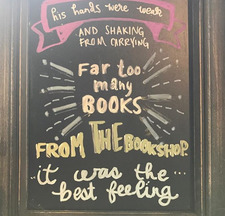 his hands were weak
AND SHAKING
FROM CARRYING
far too
many
BOOKS
FROM THE BOOKSHOP.
it was the ...
best feeling